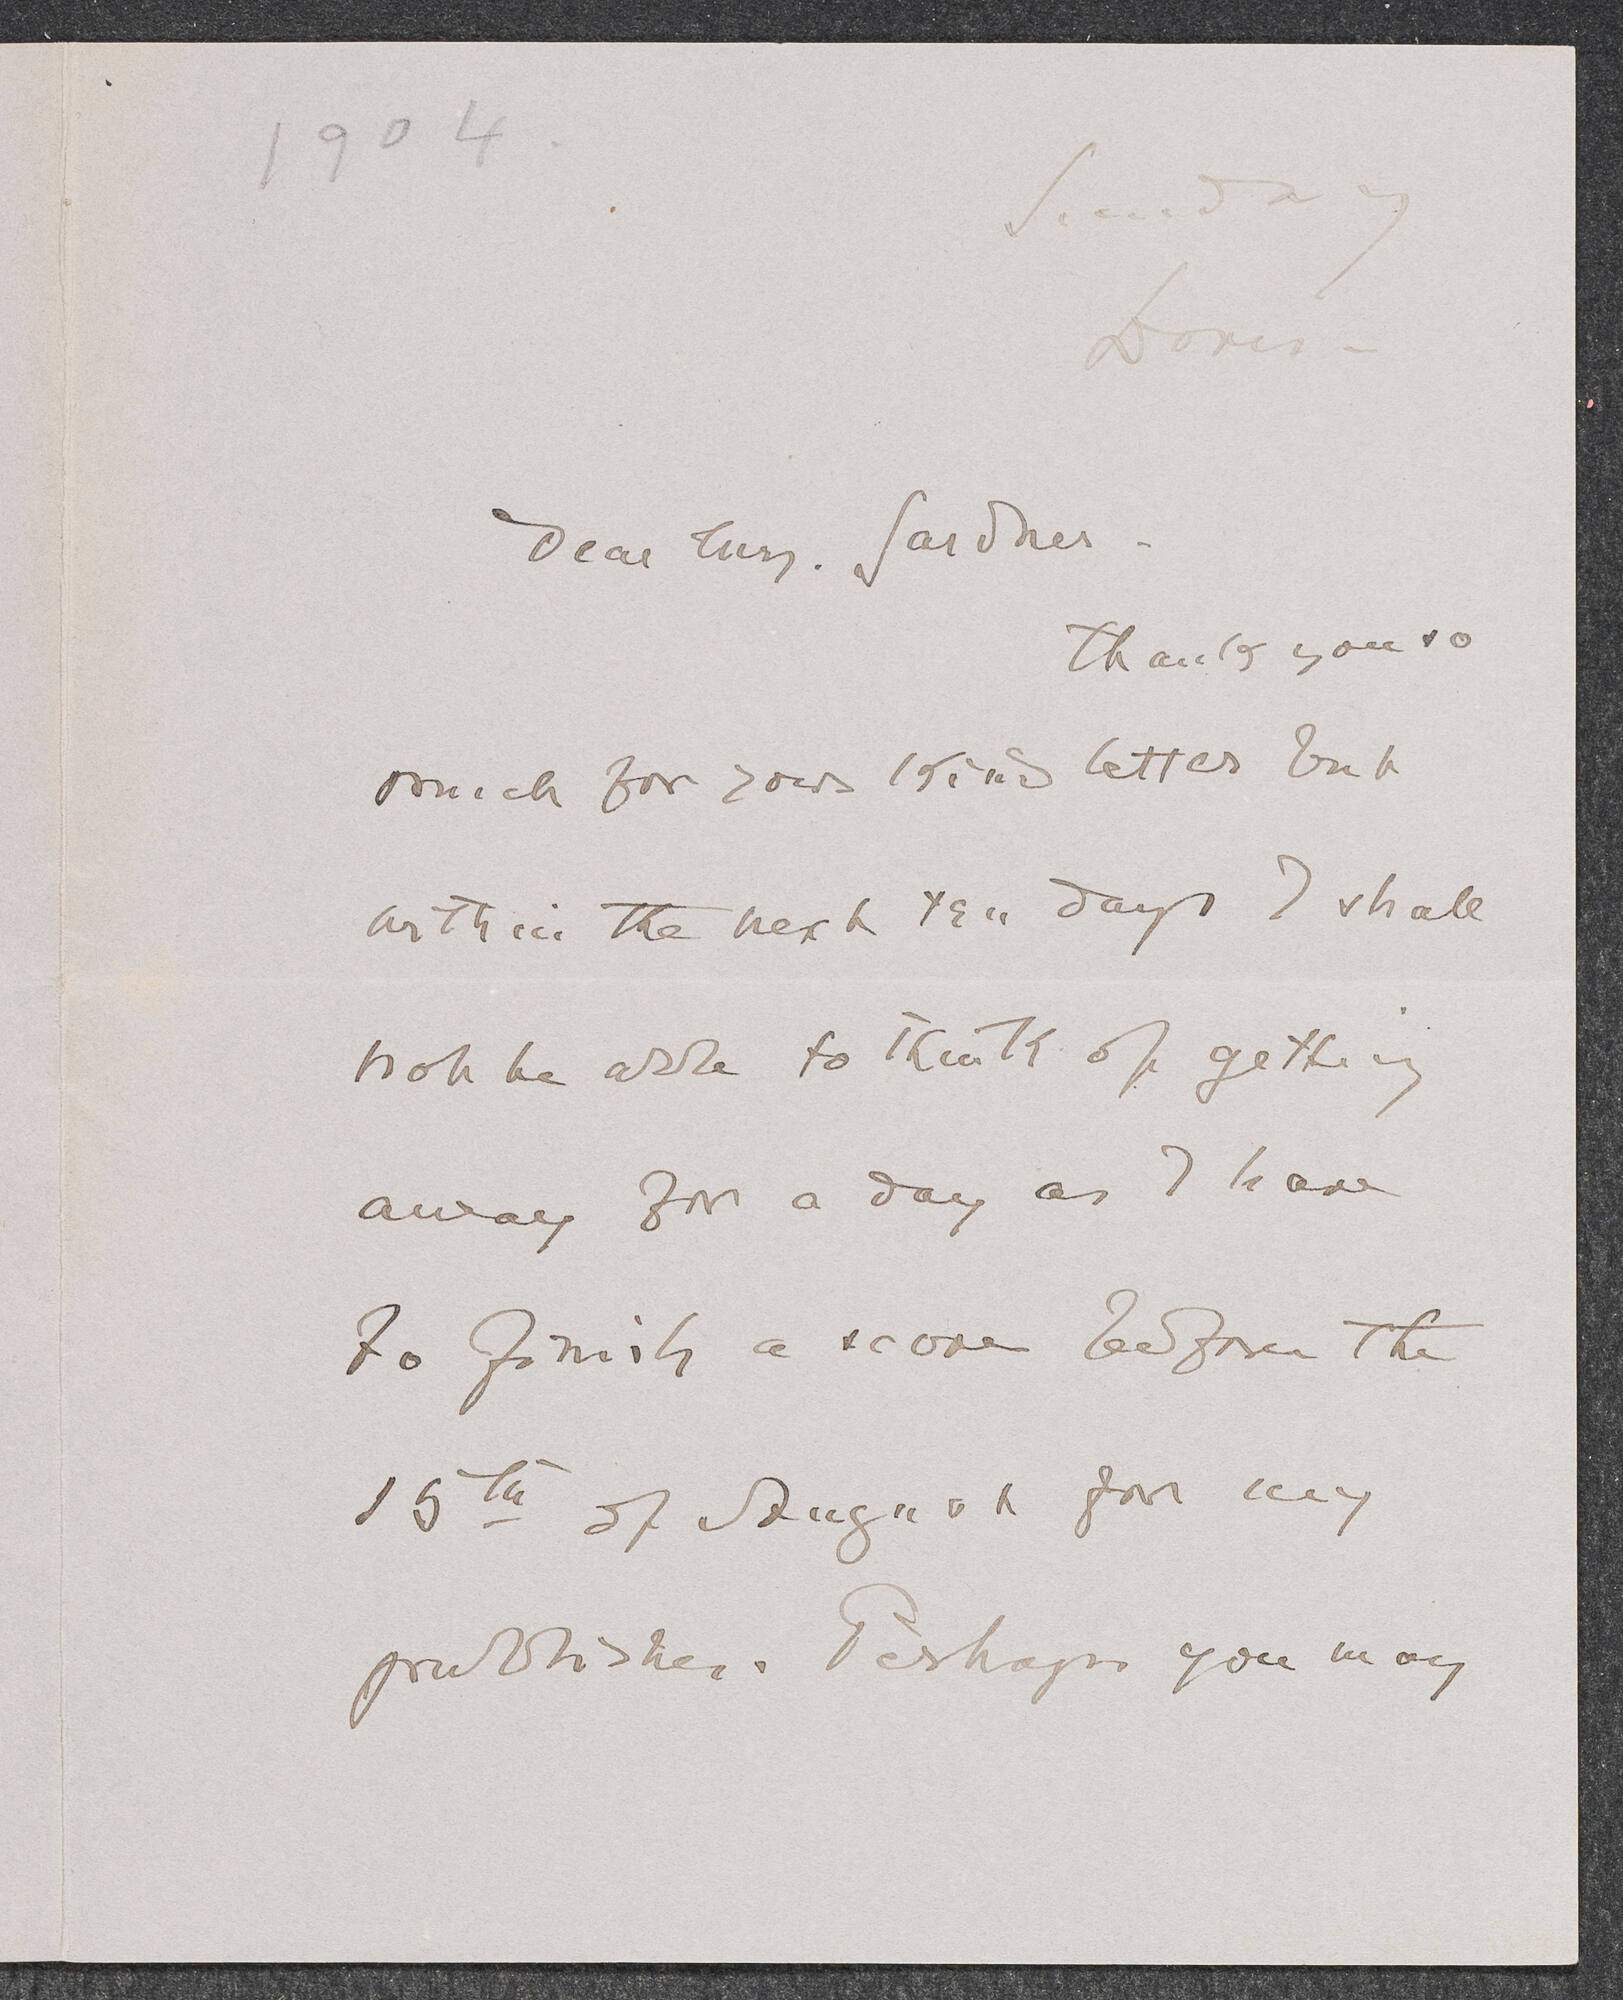 1904.
Sunday
Dover -
Dear Mrs. Gardner -
Thank you so
much for your kind letter but
within the next ten days I shall
not be able to think of getting
away for a day as I have
to finish a score before the
15th of August for my
publisher. Perhaps you may